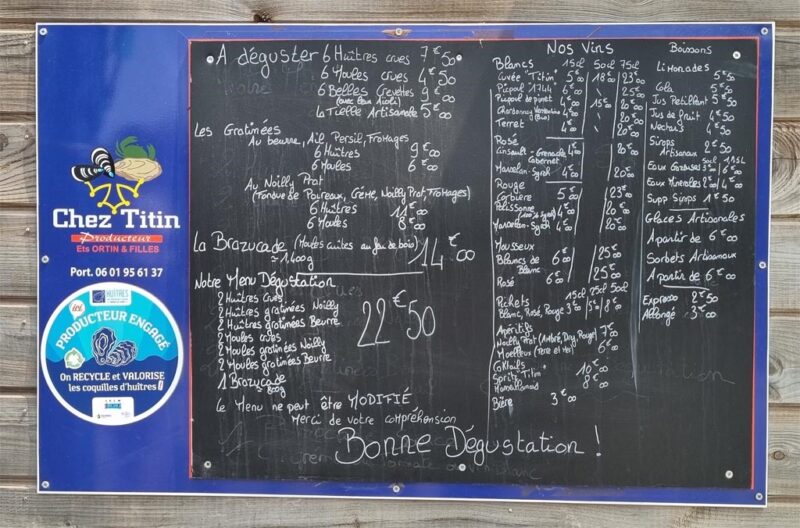 Chez Titin
Producteur
Ets ORTIN & FILLES
Port. 06 01 95 61 37
HUÎTRES
ici
PRODUCTEUR ENGAGÉ
On RECYCLE et VALORISE
les coquilles d'huîtres !
A déguster 6 Huîtres crues 7€50
6 Moules crues 4€50
6 Belles Crevettes 9€00
(avec leur Aïoli)
La Tielle Artisanale 5€00
Les Gratinées
Au beurre, Ail, Persil, Fromages
6 Huîtres 9€00
6 Moules 6€00
Au Noilly Prat
(Fondue de Poireaux, Crème, Noilly Prat, Fromages)
6 Huîtres 11€00
6 Moules 8€00
La Brazucade (Moules cuites au feu de bois) 14€00
≈ 1400g
Notre Menu Dégustation
2 Huîtres crues
2 Huîtres gratinées Noilly
2 Huîtres gratinées Beurre
2 Moules crues
2 Moules gratinées Noilly
2 Moules gratinées Beurre
1 Brazucade
800g
22€50
Le Menu ne peut être MODIFIÉ
Merci de votre compréhension
Bonne Dégustation !
Nos Vins
Blancs 15cl 50cl 75cl
Cuvée "Titin" 5€00 18€00 23€00
Picpoul 1744 6€00 25€00
Picpoul de pinet 4€00 15€00 20€00
Chardonnay 4€00 20€00
(Bio)
Terret 4€00 20€00
Rosé
Cinsault-Grenache 4€00 20€00
Cabernet
Marselan-Syrah 4€00 20€00
Rouge
Corbière 5€00 23€00
4€00 20€00
Marselan-Syrah 4€00 20€00
Mousseux
Blancs de Blanc 6€00 25€00
Rosé 6€00 25€00
Pichets 15cl 25cl 50cl
Blanc, Rosé, Rouge 3€00 5€00 8€00
Apéritifs
Noilly Prat (Ambré, Dry, Rouge) 7€00
Moelleux (Terre et Mer) 6€00
Coktails
Spritz "Titin" 10€00
8€00
Bière 3€00
Boissons
Limonades 5€50
Cola 5€00
Jus Petillant 5€50
Jus de fruit 4€00
Nectars 4€50
Sirops
Artisanaux 2€50
50cl 1L5
Eaux Gazeuses
Eaux Minérales
Supp Sirops 1€50
Glaces Artisanales
A partir de 6€00
Sorbets Artisanaux
A partir de 6€00
Expresso 2€50
Allongé 3€00